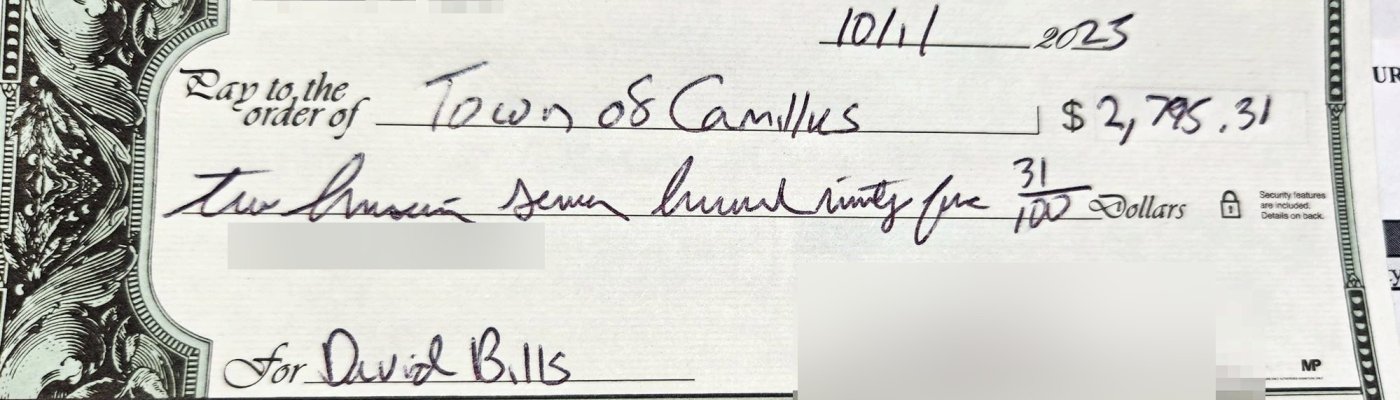 10/1/ 2023
Pay to the
order of Town of Camillus $ 2,795.31
two thousan seven hundred ninty five 31/100 Dollars
Security features
are included.
Details on back.
For David Bills
MP
UR